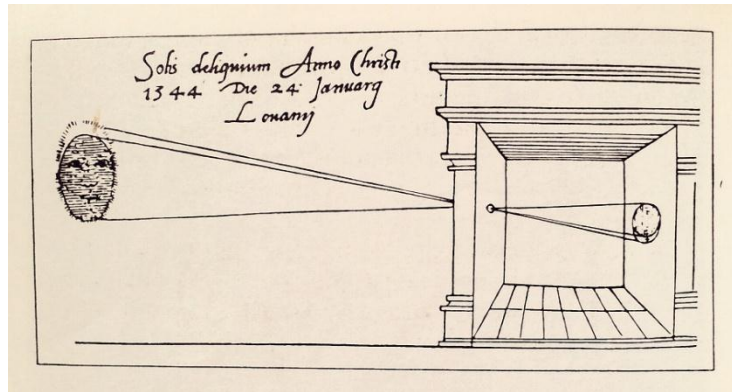 Solis deliquium Anno Christi
1344 Die 24 Januarij
Louanij